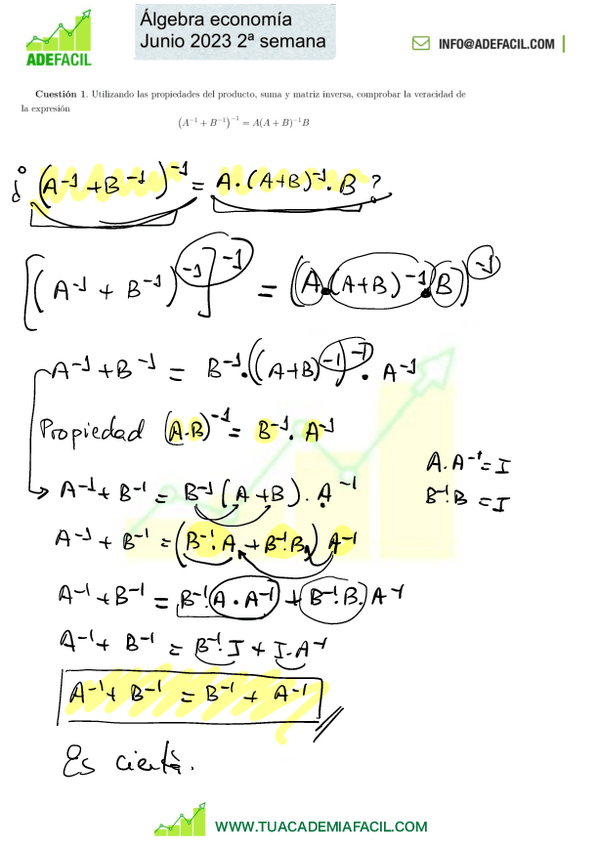 Álgebra economía
Junio 2023 2ª semana
ADEFACIL
INFO@ADEFACIL.COM
Cuestión 1. Utilizando las propiedades del producto, suma y matriz inversa, comprobar la veracidad de
la expresión
(A⁻¹ + B⁻¹)⁻¹ = A(A + B)⁻¹B
¿ (A⁻¹ + B⁻¹)⁻¹ = A · (A+B)⁻¹ · B ?
[(A⁻¹ + B⁻¹)⁻¹]⁻¹ = (A · (A+B)⁻¹ · B)⁻¹
A⁻¹ + B⁻¹ = B⁻¹ · ((A+B)⁻¹)⁻¹ · A⁻¹
Propiedad (A·B)⁻¹ = B⁻¹ · A⁻¹
A · A⁻¹ = I
A⁻¹ + B⁻¹ = B⁻¹ (A + B) · A⁻¹
B⁻¹ · B = I
A⁻¹ + B⁻¹ = (B⁻¹ · A + B⁻¹ · B) A⁻¹
A⁻¹ + B⁻¹ = B⁻¹ · A · A⁻¹ + B⁻¹ · B · A⁻¹
A⁻¹ + B⁻¹ = B⁻¹ · I + I · A⁻¹
A⁻¹ + B⁻¹ = B⁻¹ + A⁻¹
Es cierta.
WWW.TUACADEMIAFACIL.COM